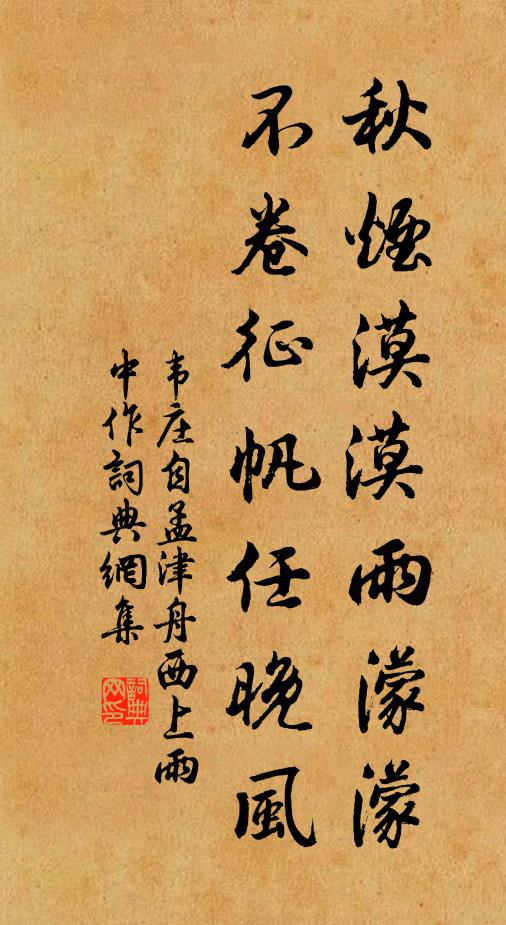 秋煙漠漠雨濛濛
不卷征帆任晚風
韦庄自孟津舟西上雨
中作詞典網集
詞典網印